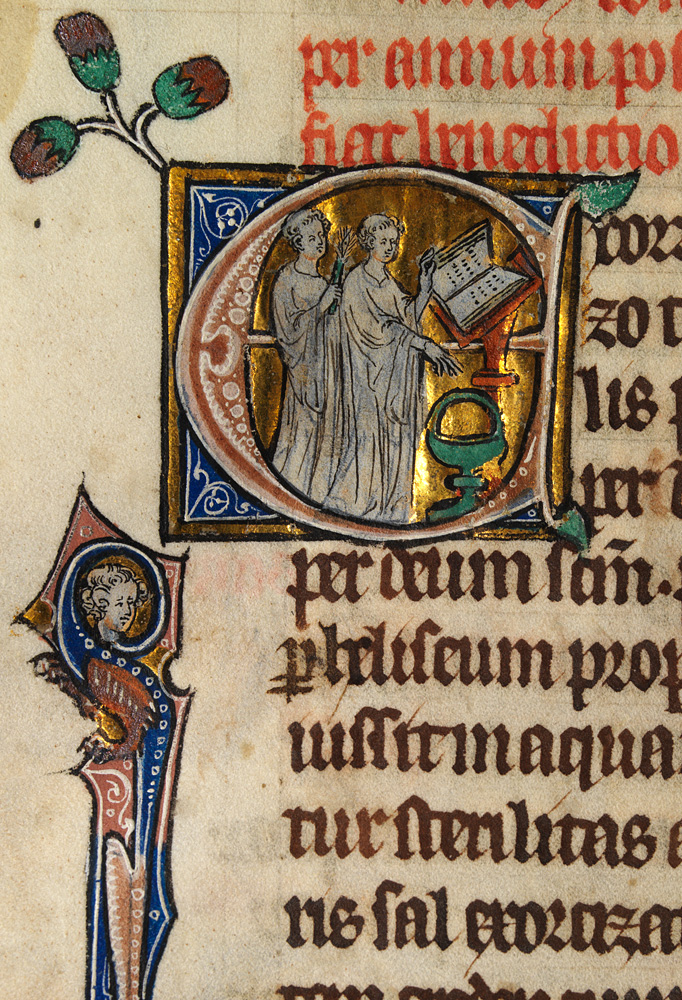 per annum pos
fiat benedictio
xorr
zo t
lis p
per d
per deum scm̄.
ꝑ heliseum prop
iussit in aqua
tur sterilitas e
ris sal exorcizet